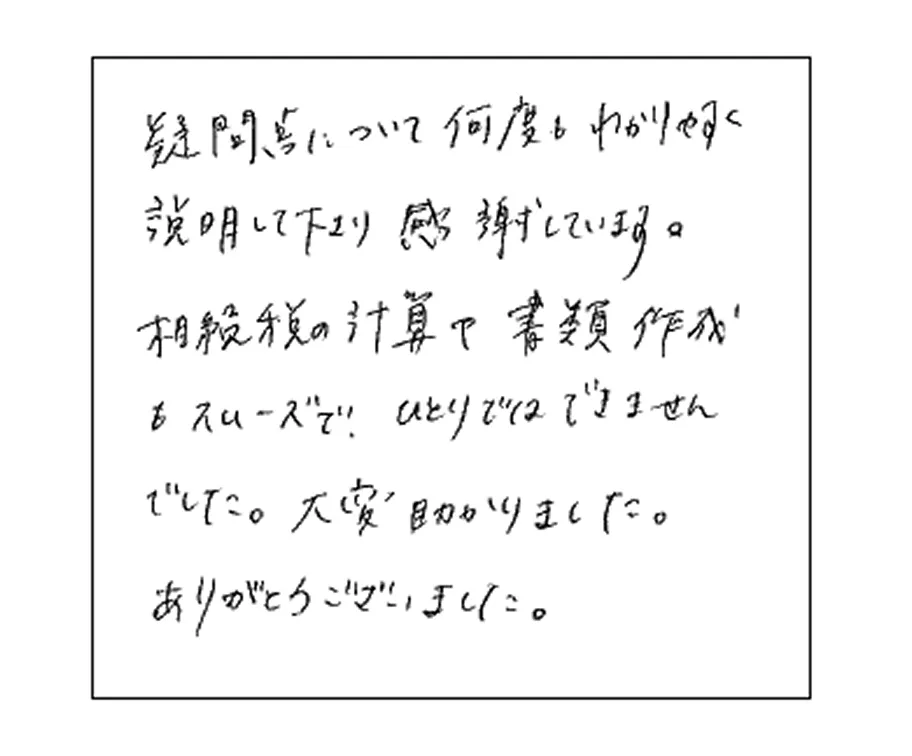 疑問点について何度もわかりやすく
説明して下さり感謝しています。
相続税の計算や書類作成
もスムーズで、ひとりではできません
でした。大変助かりました。
ありがとうございました。